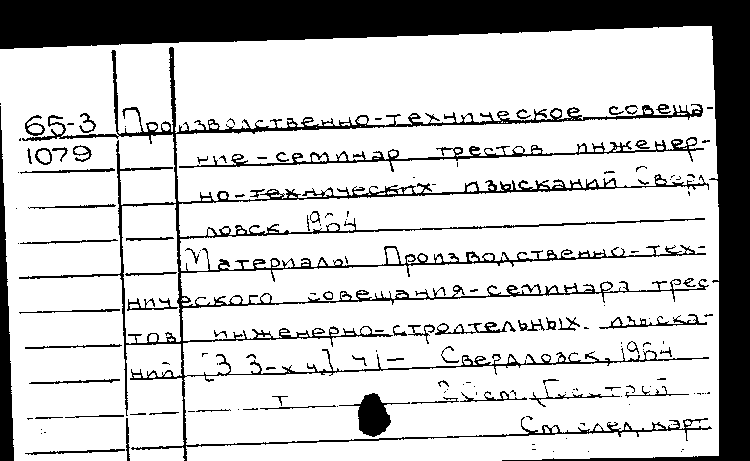 65-3 Производственно-техническое совеща-
1079 ние-семинар трестов инженер-
но-технических изысканий. Сверд-
ловск. 1964
Материалы Производственно-тех-
нического совещания-семинара трес-
тов инженерно-строительных изыска-
ний [В 3-х ч.]. Ч 1– Свердловск, 1964
Т
См. след. карт.